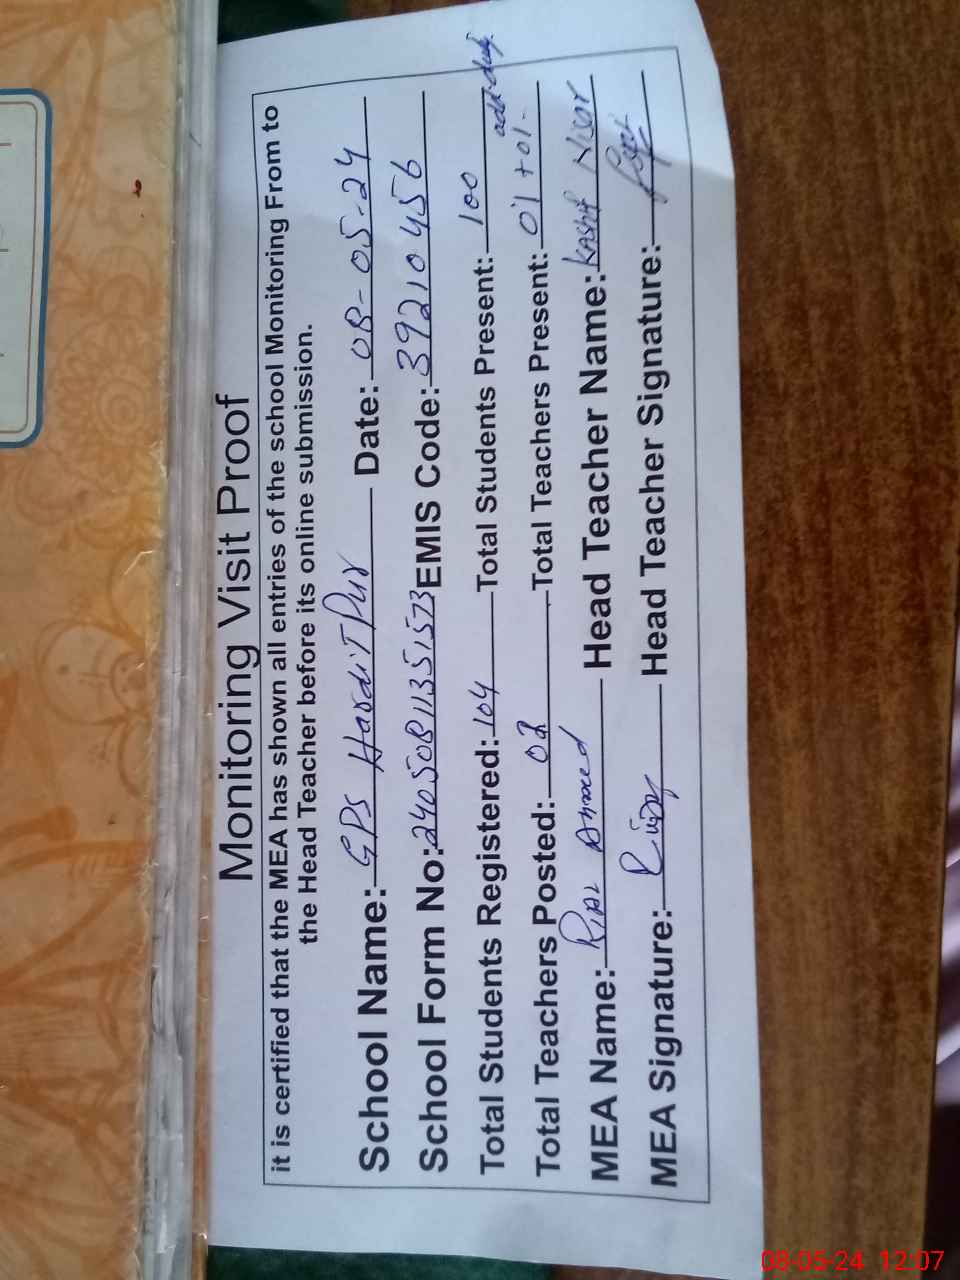 Monitoring Visit Proof
it is certified that the MEA has shown all entries of the school Monitoring From to
the Head Teacher before its online submission.
School Name: GPS HardiT Pur Date: 08-05-24
School Form No: 240508113515173 EMIS Code: 39210456
Total Students Registered: 104 Total Students Present: 100
Total Teachers Posted: 02 Total Teachers Present: 01+01-
MEA Name: Head Teacher Name: Kashif Nisar
MEA Signature: Head Teacher Signature:
08-05-24 12:07